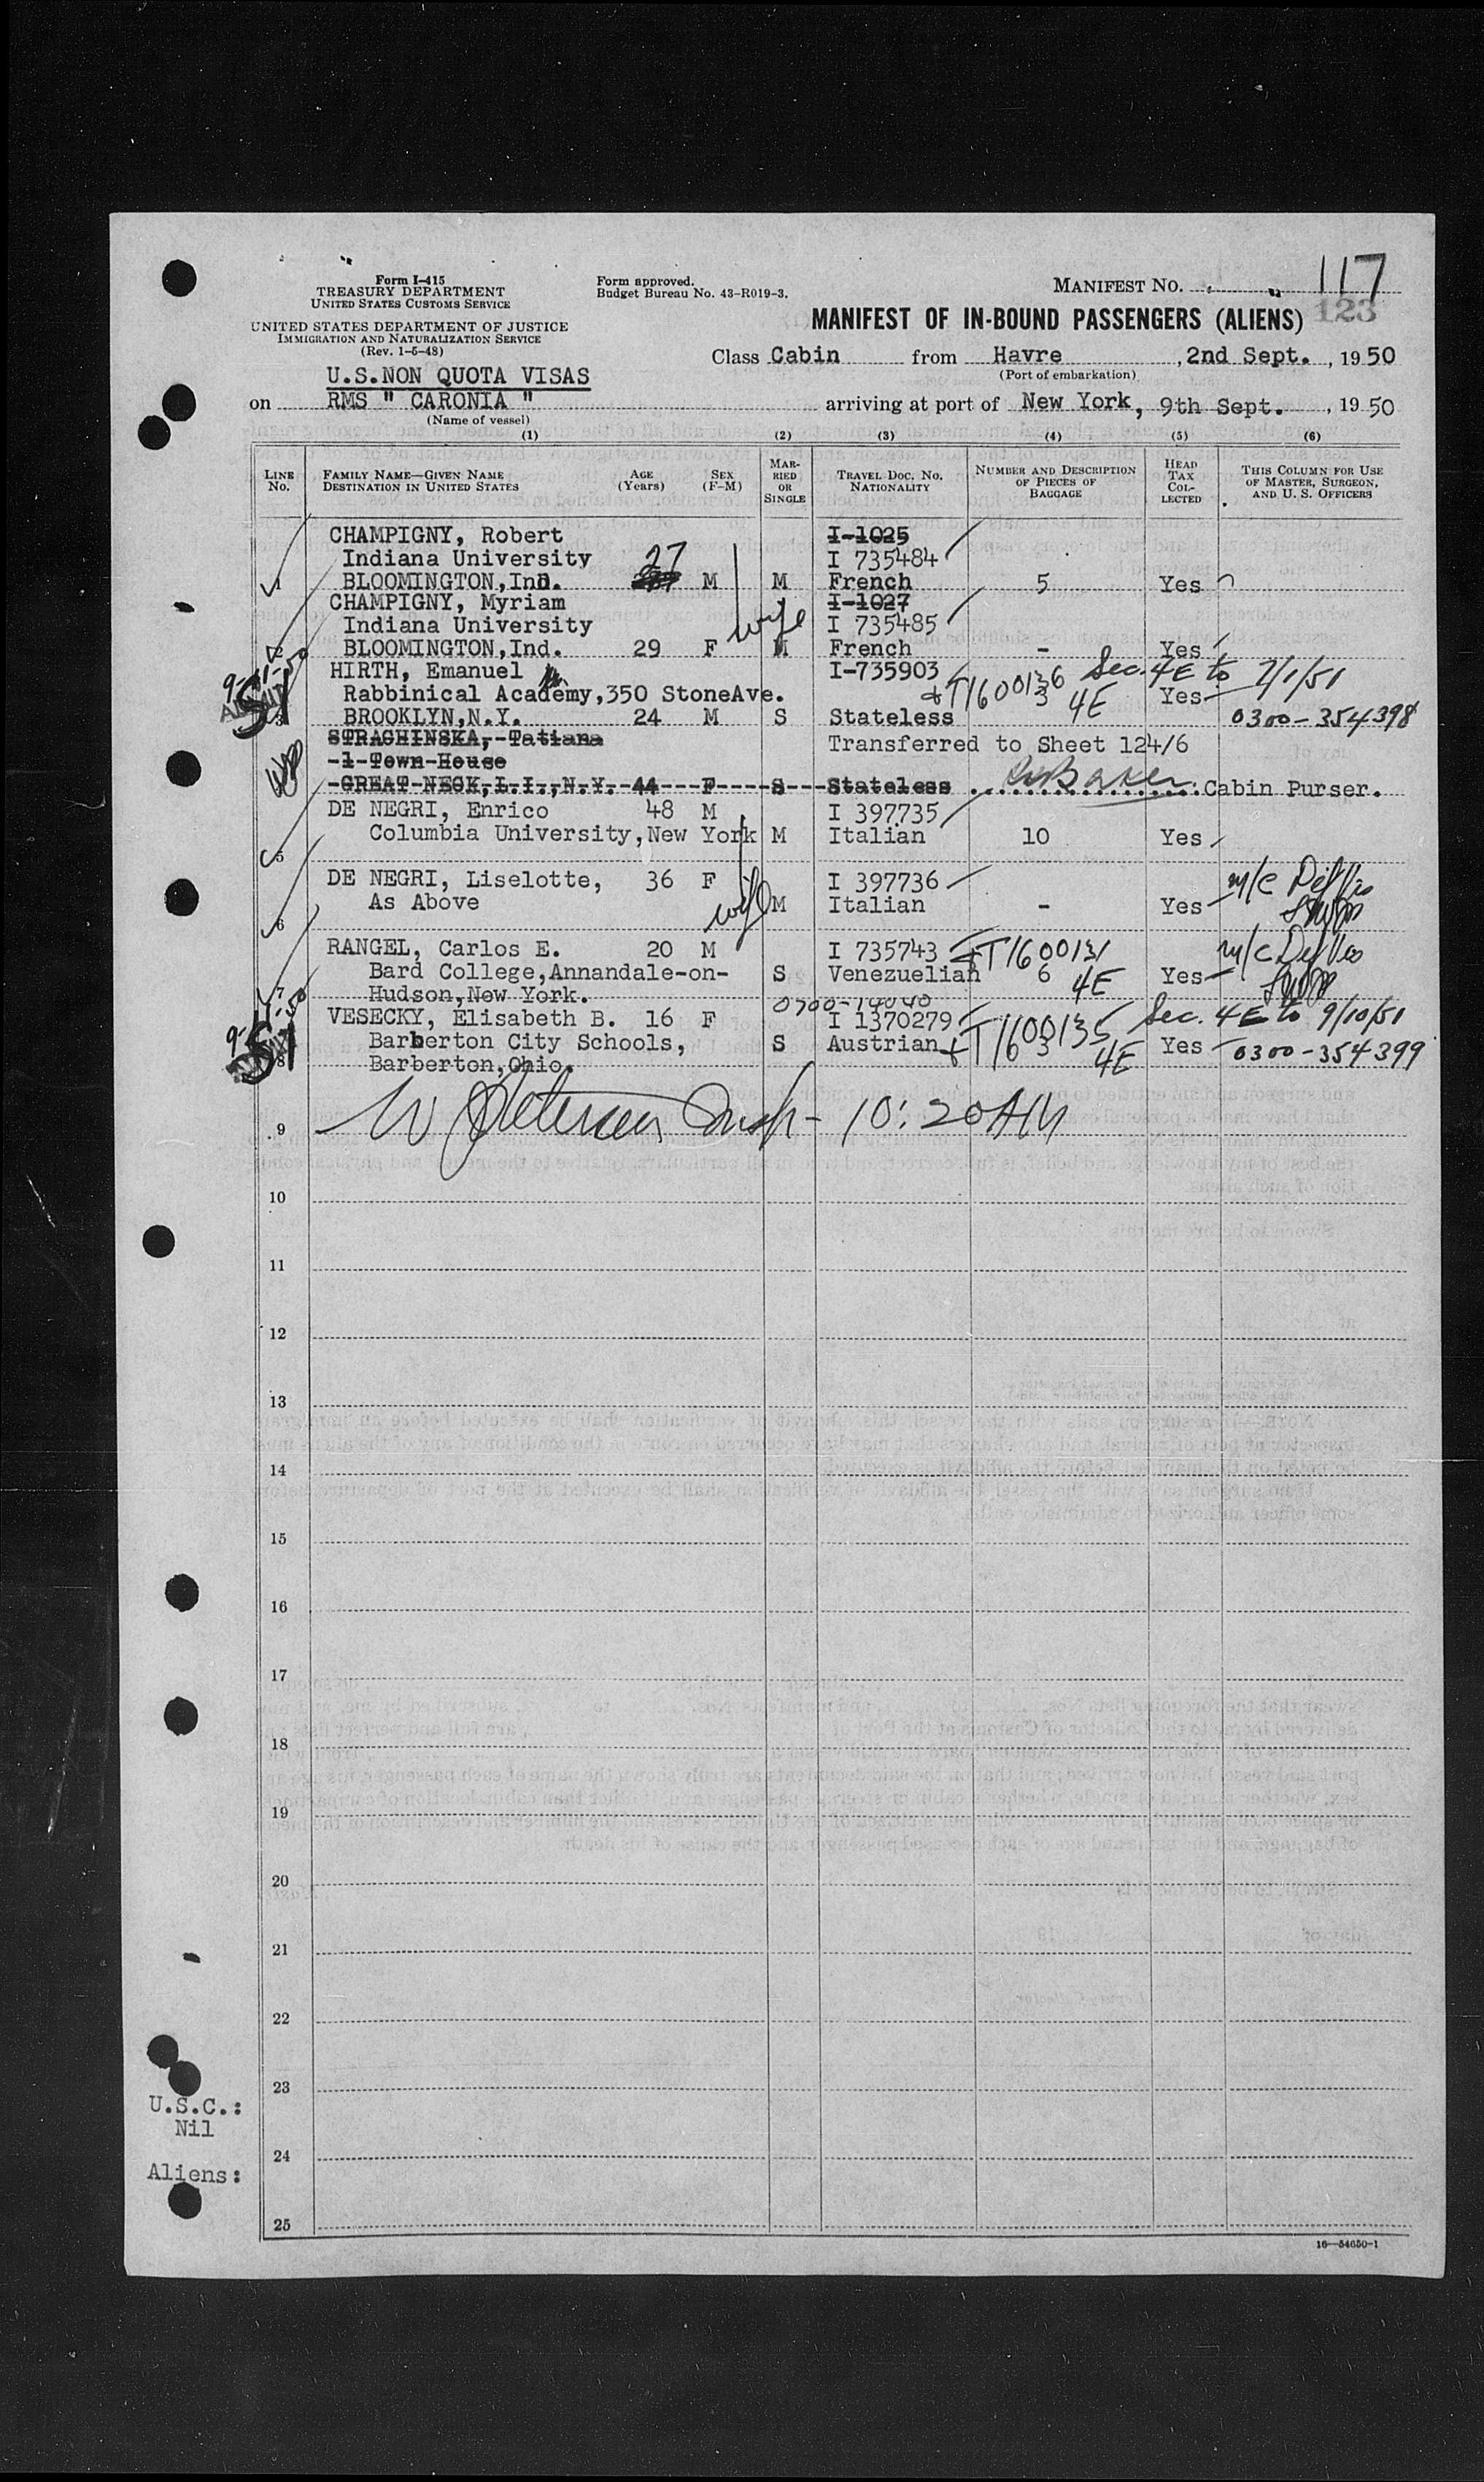 Form I-415
TREASURY DEPARTMENT
UNITED STATES CUSTOMS SERVICE
Form approved.
Budget Bureau No. 43-R019-3.
MANIFEST NO. 117
123
UNITED STATES DEPARTMENT OF JUSTICE
IMMIGRATION AND NATURALIZATION SERVICE
(Rev. 1-5-48)
MANIFEST OF IN-BOUND PASSENGERS (ALIENS)
Class Cabin from Havre, 2nd Sept., 1950
(Port of embarkation)
U.S.NON QUOTA VISAS
on RMS " CARONIA " arriving at port of New York, 9th Sept., 1950
(Name of vessel)
(1) (2) (3) (4) (5) (6)
LINE NO. FAMILY NAME—GIVEN NAME DESTINATION IN UNITED STATES AGE (Years) SEX (F-M) MARRIED OR SINGLE TRAVEL DOC. NO. NATIONALITY NUMBER AND DESCRIPTION OF PIECES OF BAGGAGE HEAD TAX COLLECTED THIS COLUMN FOR USE OF MASTER, SURGEON, AND U. S. OFFICERS
CHAMPIGNY, Robert I-1025
Indiana University 27 I 735484
1 BLOOMINGTON,Ind. M M French 5 Yes
CHAMPIGNY, Myriam I-1027
Indiana University wife I 735485
2 BLOOMINGTON,Ind. 29 F M French - Yes
HIRTH, Emanuel I-735903 Sec. 4E to 7/1/51
Rabbinical Academy,350 StoneAve. T1600136 3 4E Yes
3 BROOKLYN,N.Y. 24 M S Stateless 0300-354398
STRACHINSKA, Tatiana Transferred to Sheet 124/6
-1-Town-House
-GREAT-NECK,L.I.,N.Y.-44---F----S---Stateless Cabin Purser.
DE NEGRI, Enrico 48 M I 397735
Columbia University,New York M Italian 10 Yes
5
DE NEGRI, Liselotte, 36 F I 397736
As Above wife M Italian - Yes
6
RANGEL, Carlos E. 20 M I 735743 T1600131
Bard College,Annandale-on- S Venezuelian 6 4E Yes
7 Hudson,New York.
VESECKY, Elisabeth B. 16 F I 1370279 T1600135 Sec. 4E to 9/10/51
Barberton City Schools, S Austrian 3 4E Yes 0300-354399
8 Barberton,Ohio.
9 10:20AM
10
11
12
13
14
15
16
17
18
19
20
21
22
23
24
25
U.S.C.:
Nil
Aliens:
16—54650-1